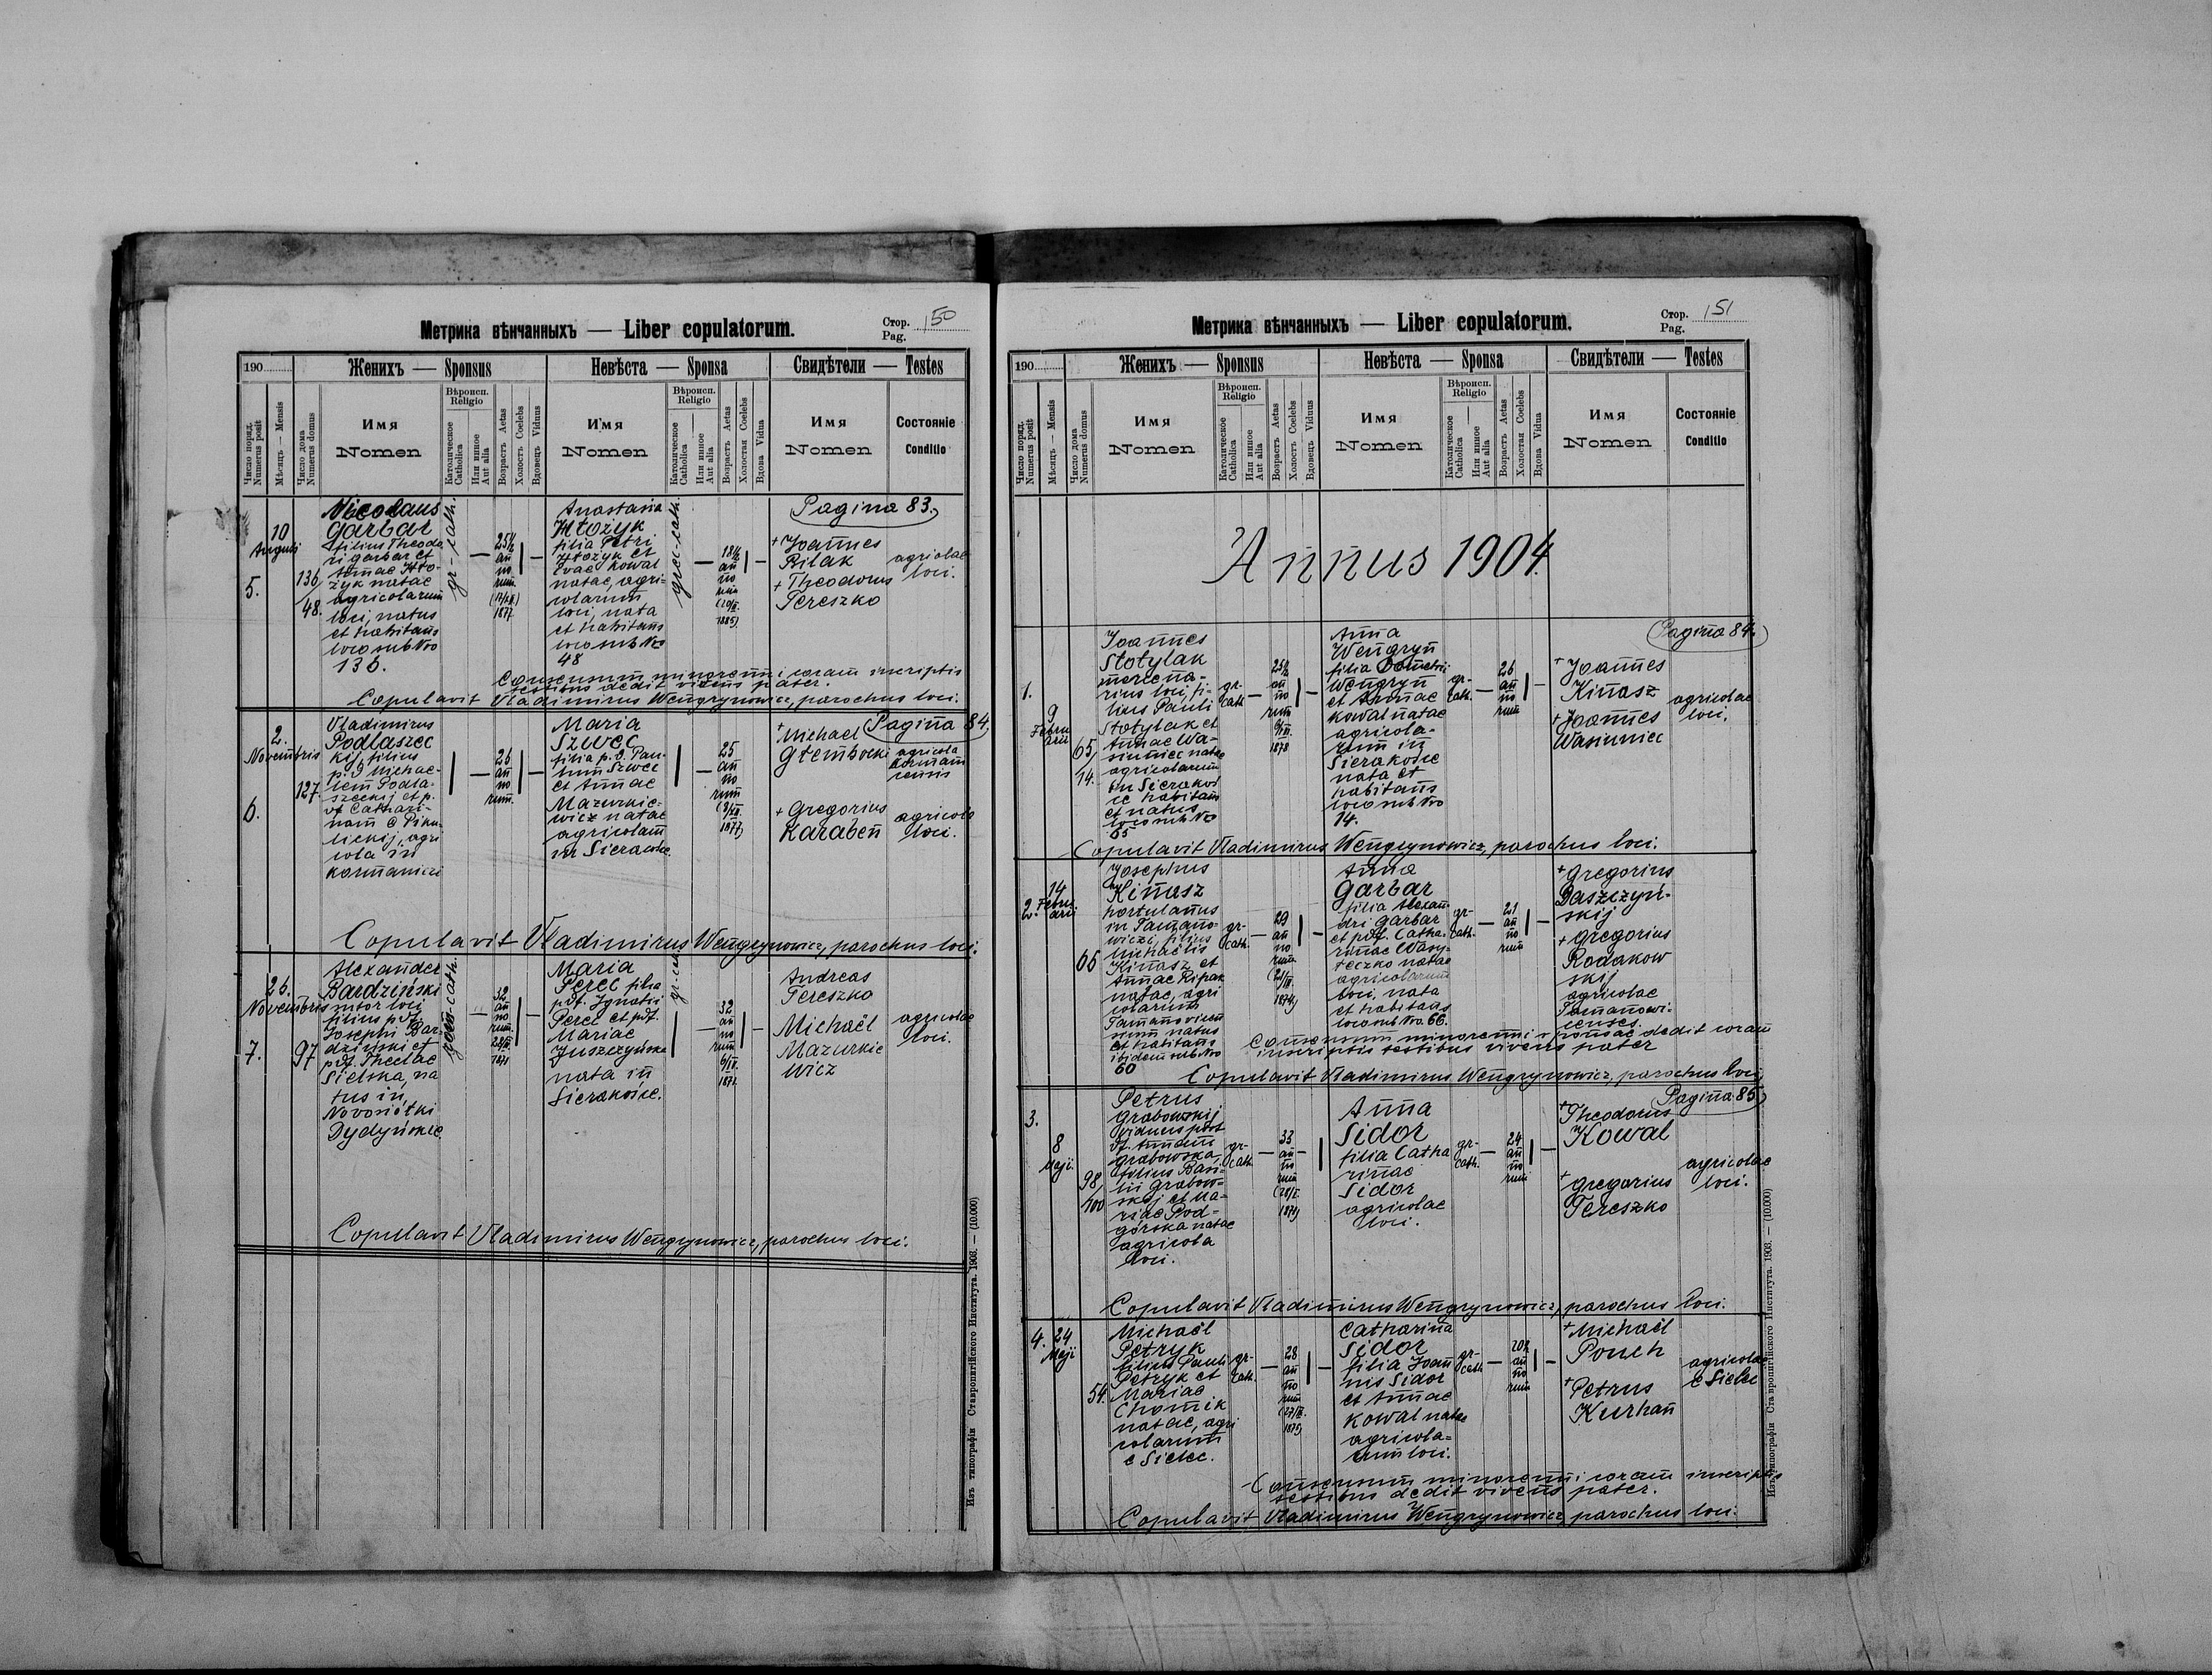 Метрика вѣнчанныхъ — Liber copulatorum.
Стор. Pag. 150
190
Женихъ — Sponsus
Невѣста — Sponsa
Свидѣтели — Testes
Число поряд. Numerus posit
Мѣсяцъ — Mensis
Число дома Numerus domus
Имя Nomen
Вѣроисп. Religio
Католическое Catholica
Или инное Aut alia
Возрастъ Aetas
Холостъ Coelebs
Вдовецъ Viduus
Имя Nomen
Вѣроисп. Religio
Католическое Catholica
Или инное Aut alia
Возрастъ Aetas
Холостая Coelebs
Вдова Vidua
Имя Nomen
Состояніе Conditio
5.
10
Augusti
136/
48.
Nicolaus
Garbar
filius Theodo
ri Garbar et
Annae Hto-
żyk natae
agricolarum
loci, natus
et habitans
loco sub Nro
136.
gr-cath.
25½
an
no
rum
1877
Anastasia
Htożyk
filia Petri
Htożyk et
Evae Kowal
natae, agri-
colarum
loci, nata
et habitans
loco sub Nro
48
grec-cath.
18½
an
no
rum
1885)
Pagina 83.
+ Joannes
Rilak
+ Theodorus
Tereszko
agricolae
loci.
Consensum minorenni coram inscriptis
testibus dedit vivens pater.
Copulavit Vladimirus Wengrynowicz, parochus loci.
6.
2.
Novembris
127.
Vladimirus
Podlaszec
kij, filius
p. d. Michae-
lem Podla-
szeckij et p.
Cathari-
nam
lickij, agri
cola in
Kormanici
26
an
no
rum.
Maria
Szwec
filia p. d. Pau-
lum Szwec
et Annae
Mazurkie-
wicz natae
agricolam
in Sierakosce.
25
an
no
rum
1877)
Pagina 84.
+ Michael
Głembocki
agricola
Korman
icensis
+ Gregorius
Karaben
agricola
loci.
Copulavit Vladimirus Wengrynowicz, parochus loci.
7.
26.
Novembris
97
Alexander
Bardziński
sutor loci
filius pdf.
Josephi Bar-
dziński et
pdf. Theclae
Sielska, na
tus in
Novosiółki
Dydyńskie.
rom-cath.
32
an
no
rum.
1871
Maria
Perec filia
pdf. Ignatii
Perec et pdf.
Mariae
Juszczyńska
nata in
Sierakośce.
gr-cath
32
an
no
rum
1871.
Andreas
Tereszko
Michaël
Mazurkie
wicz
agricolae
loci.
Copulavit Vladimirus Wengrynowicz, parochus loci.
Изъ типографіи Ставропигійского Института. 1903. — (10.000)
Метрика вѣнчанныхъ — Liber copulatorum.
Стор. Pag. 151
190
Женихъ — Sponsus
Невѣста — Sponsa
Свидѣтели — Testes
Число поряд. Numerus posit
Мѣсяцъ — Mensis
Число дома Numerus domus
Имя Nomen
Вѣроисп. Religio
Католическое Catholica
Или инное Aut alia
Возрастъ Aetas
Холостъ Coelebs
Вдовецъ Viduus
Имя Nomen
Вѣроисп. Religio
Католическое Catholica
Или инное Aut alia
Возрастъ Aetas
Холостая Coelebs
Вдова Vidua
Имя Nomen
Состояніе Conditio
Annus 1904.
1.
9
Febru
arii
65/
14.
Joannes
Stotylak
mercena-
rius loci, fi-
lius Pauli
Stotylak et
Annae Wa-
siuniec natae
agricolarum
in Sierakoś
ce habitans
et natus
loco sub Nro
65
gr-
cath.
25½
an
no
rum
1878
Anna
Wengryn
filia Demetrii
Wengryn
et Annae
Kowal natae
agricola-
rum in
Sierakosce
nata et
habitans
loco sub Nro
14.
gr-
cath.
26
an
no
rum
Pagina 84.
+ Joannes
Kinasz
+ Joannes
Wasiuniec
agricolae
loci.
Copulavit Vladimirus Wengrynowicz, parochus loci.
2.
14
Febru
arii
66
Josephus
Kinasz
hortulanus
in Tamano-
wicze, filius
Michaëlis
Kinasz et
Annae Ripak
natae, agri
colarum
Tamanovicen
sium natus
et habitans
ibidem sub Nro
60
gr-
cath.
29
an
no
rum
1874)
Anna
Garbar
filia Alexan-
dri Garbar
et pdf. Catha-
rinae Wasy-
teczko natae
agricolarum
loci, nata
et habitans
loco sub Nro. 66.
gr-
cath.
21
an
no
rum
+ Gregorius
Daszczyń-
skij
+ Gregorius
Rodakow
skij
agricolae
Tamanowi-
censes.
Consensum minorenni sponsae dedit coram
inscriptis testibus vivens pater
Copulavit Vladimirus Wengrynowicz, parochus loci.
3.
8
Maji
98/
100
Petrus
Grabowskij
viduus post
Annam
Grabowska,
filius Basi-
lii Grabow-
skij et Ma-
riae Pod-
górska natae
agricola
loci.
gr-
cath.
33
an
no
rum
1871)
Anna
Sidor
filia Catha
rinae
Sidor
agricolae
loci.
gr-
cath.
24
an
no
rum
Pagina 85.
+ Theodorus
Kowal
+ Gregorius
Tereszko
agricolae
loci.
Copulavit Vladimirus Wengrynowicz, parochus loci.
4.
24
Maji
54.
Michaël
Petryk
filius Pauli
Petryk et
Mariae
Chomik
natae, agri
colarum
e Sielec.
gr-
cath.
28
an
no
rum
1875)
Catharina
Sidor
filia Joan
nis Sidor
et Annae
Kowal natae
agricola=
rum loci.
gr-
cath
20½
an
no
rum
+ Michaël
Pouch
+ Petrus
Kurhan
agricolae
e Sielec
Consensum minorenni coram inscriptis
testibus dedit vivens pater.
Copulavit Vladimirus Wengrynowicz parochus loci.
Изъ типографіи Ставропигійского Института. 1903. — (10.000)